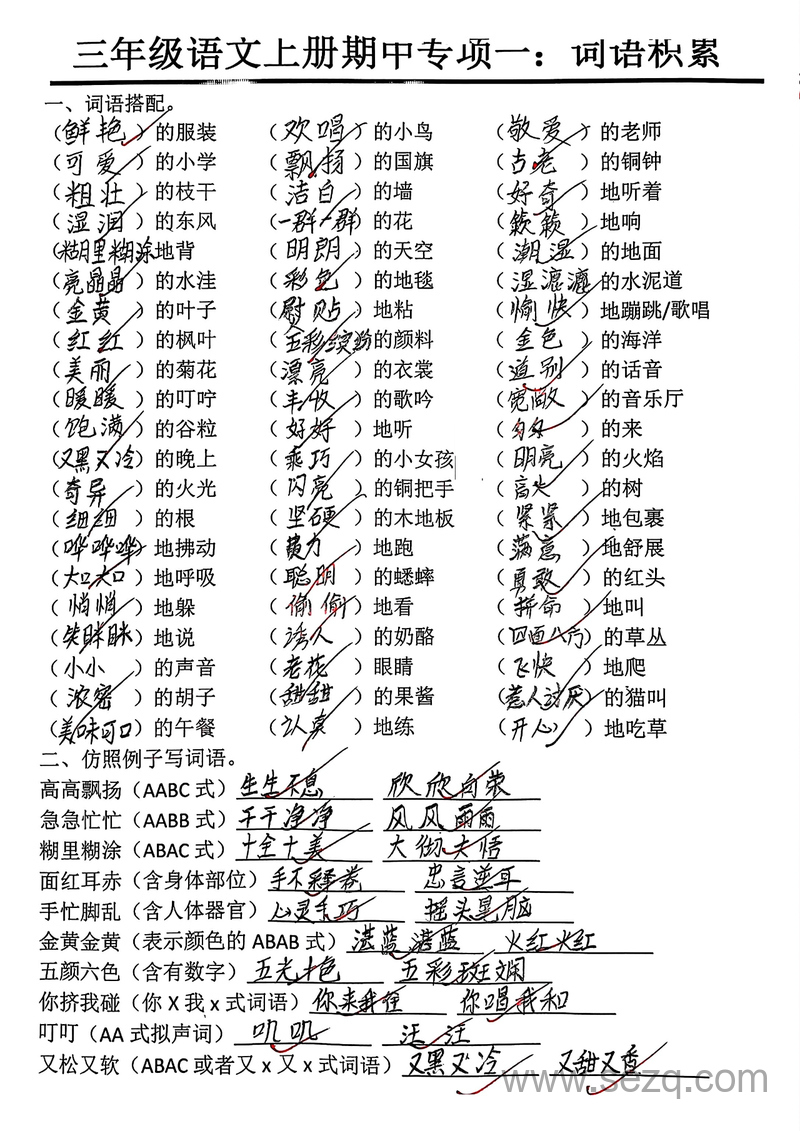 三年级语文上册期中专项一：词语积累
一、词语搭配。
（鲜艳）的服装 （欢唱）的小鸟 （敬爱）的老师
（可爱）的小学 （飘扬）的国旗 （古老）的铜钟
（粗壮）的枝干 （洁白）的墙 （好奇）地听着
（湿润）的东风 （一群一群）的花 （簌簌）地响
（糊里糊涂地背 （明朗）的天空 （潮湿）的地面
（亮晶晶）的水洼 （彩色）的地毯 （湿漉漉的水泥道
（金黄）的叶子 （熨贴）地粘 （愉快）地蹦跳/歌唱
（红红）的枫叶 （五彩缤纷的颜料 （金色）的海洋
（美丽）的菊花 （漂亮）的衣裳 （道别）的话音
（暖暖）的叮咛 （丰收）的歌吟 （宽敞）的音乐厅
（饱满）的谷粒 （好好）地听 （匆匆）的来
（又黑又冷）的晚上 （乖巧）的小女孩 （明亮）的火焰
（奇异）的火光 （闪亮）的铜把手 （高大）的树
（细细）的根 （坚硬）的木地板 （紧紧）地包裹
（哗哗哗）地拂动 （费力）地跑 （满意）地舒展
（大口大口）地呼吸 （聪明）的蟋蟀 （勇敢）的红头
（悄悄）地躲 （偷偷）地看 （拼命）地叫
（笑眯眯）地说 （诱人）的奶酪 （四面八方）的草丛
（小小）的声音 （老花）眼睛 （飞快）地爬
（浓密）的胡子 （甜甜）的果酱 （惹人讨厌）的猫叫
（美味可口）的午餐 （认真）地练 （开心）地吃草
二、仿照例子写词语。
高高飘扬（AABC 式）生生不息 欣欣向荣
急急忙忙（AABB 式）干干净净 风风雨雨
糊里糊涂（ABAC 式）十全十美 大彻大悟
面红耳赤（含身体部位）手不释卷 忠言逆耳
手忙脚乱（含人体器官）心灵手巧 摇头晃脑
金黄金黄（表示颜色的 ABAB 式）湛蓝湛蓝 火红火红
五颜六色（含有数字）五光十色 五彩斑斓
你挤我碰（你 X 我 x 式词语）你来我往 你唱我和
叮叮（AA 式拟声词）叽叽 汪汪
又松又软（ABAC 或者又 x 又 x 式词语）又黑又冷 又甜又香
www.sezq.com